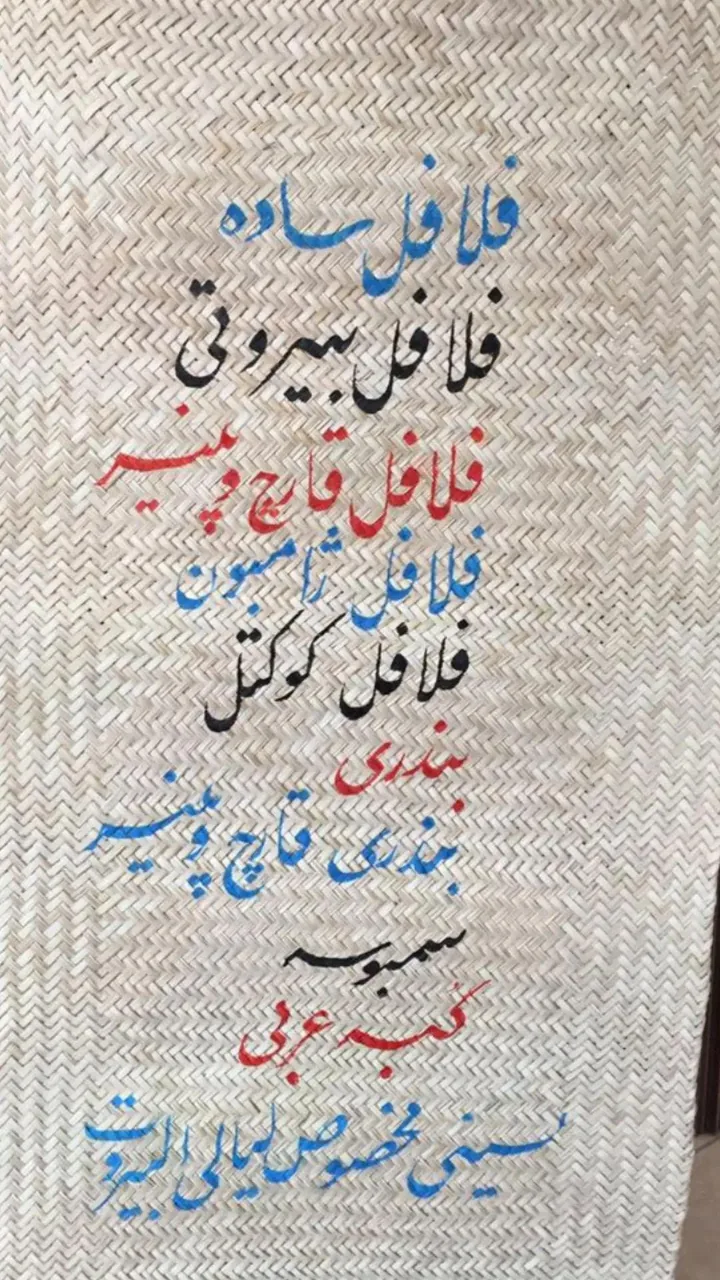 فلافل ساده
فلافل بیروتی
فلافل قارچ و پنیر
فلافل ژامبون
فلافل کوکتل
بندری
بندری قارچ و پنیر
سمبوسه
کُبه عربی
سینی مخصوص لیالی البیروت